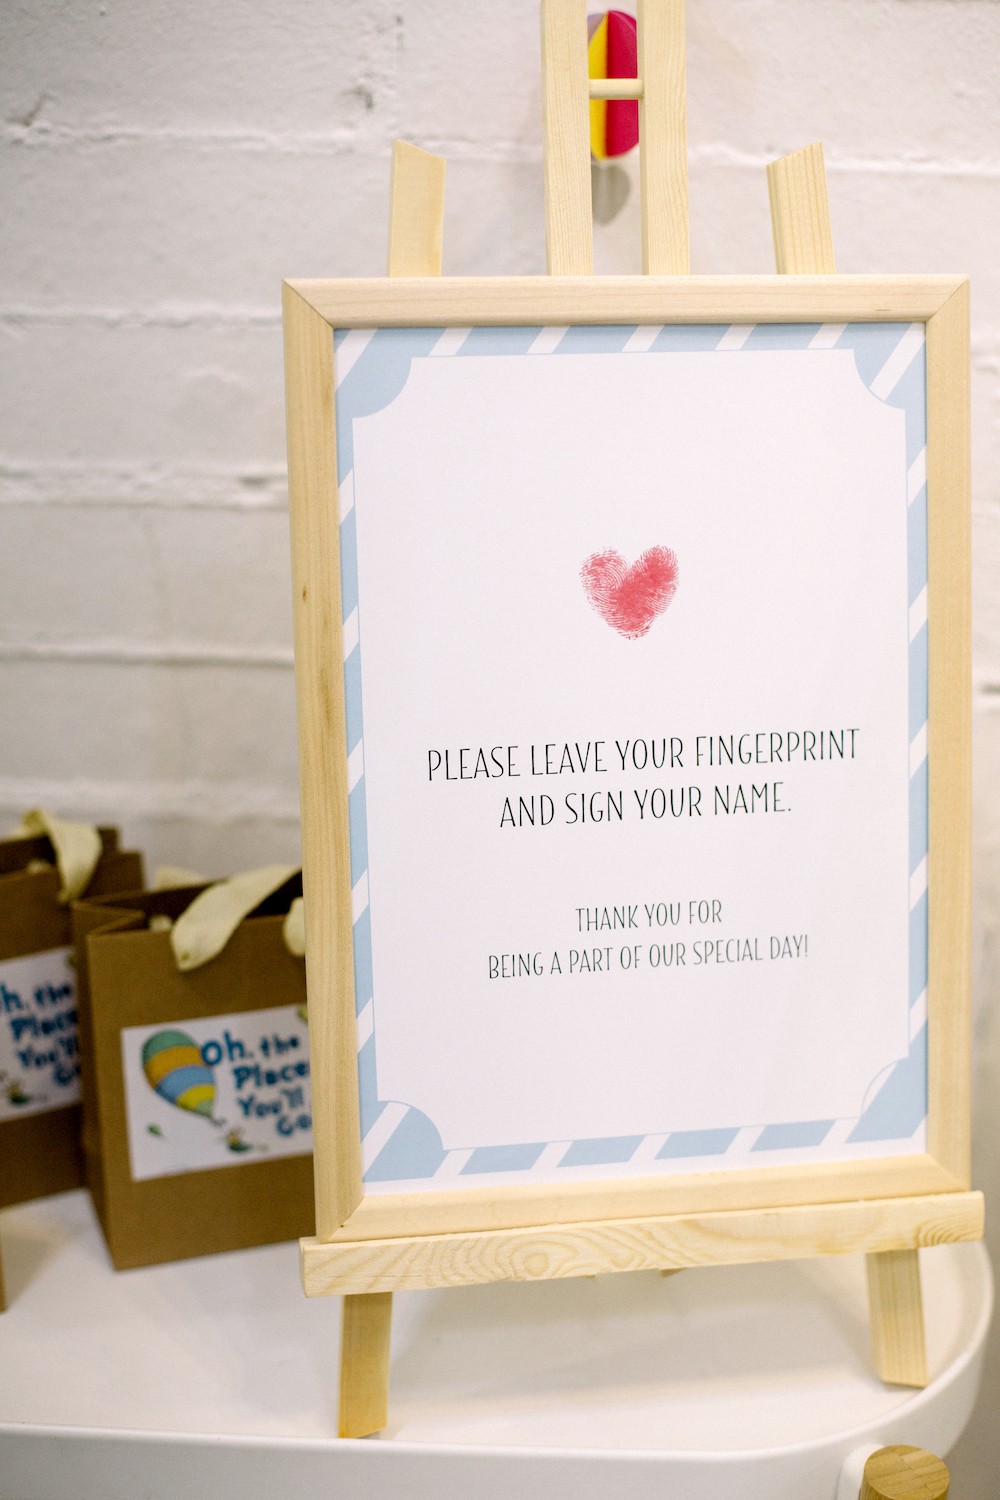 PLEASE LEAVE YOUR FINGERPRINT
AND SIGN YOUR NAME.
THANK YOU FOR
BEING A PART OF OUR SPECIAL DAY!
Oh, the
Place
You'll
Go
Oh, the
Place
You'll